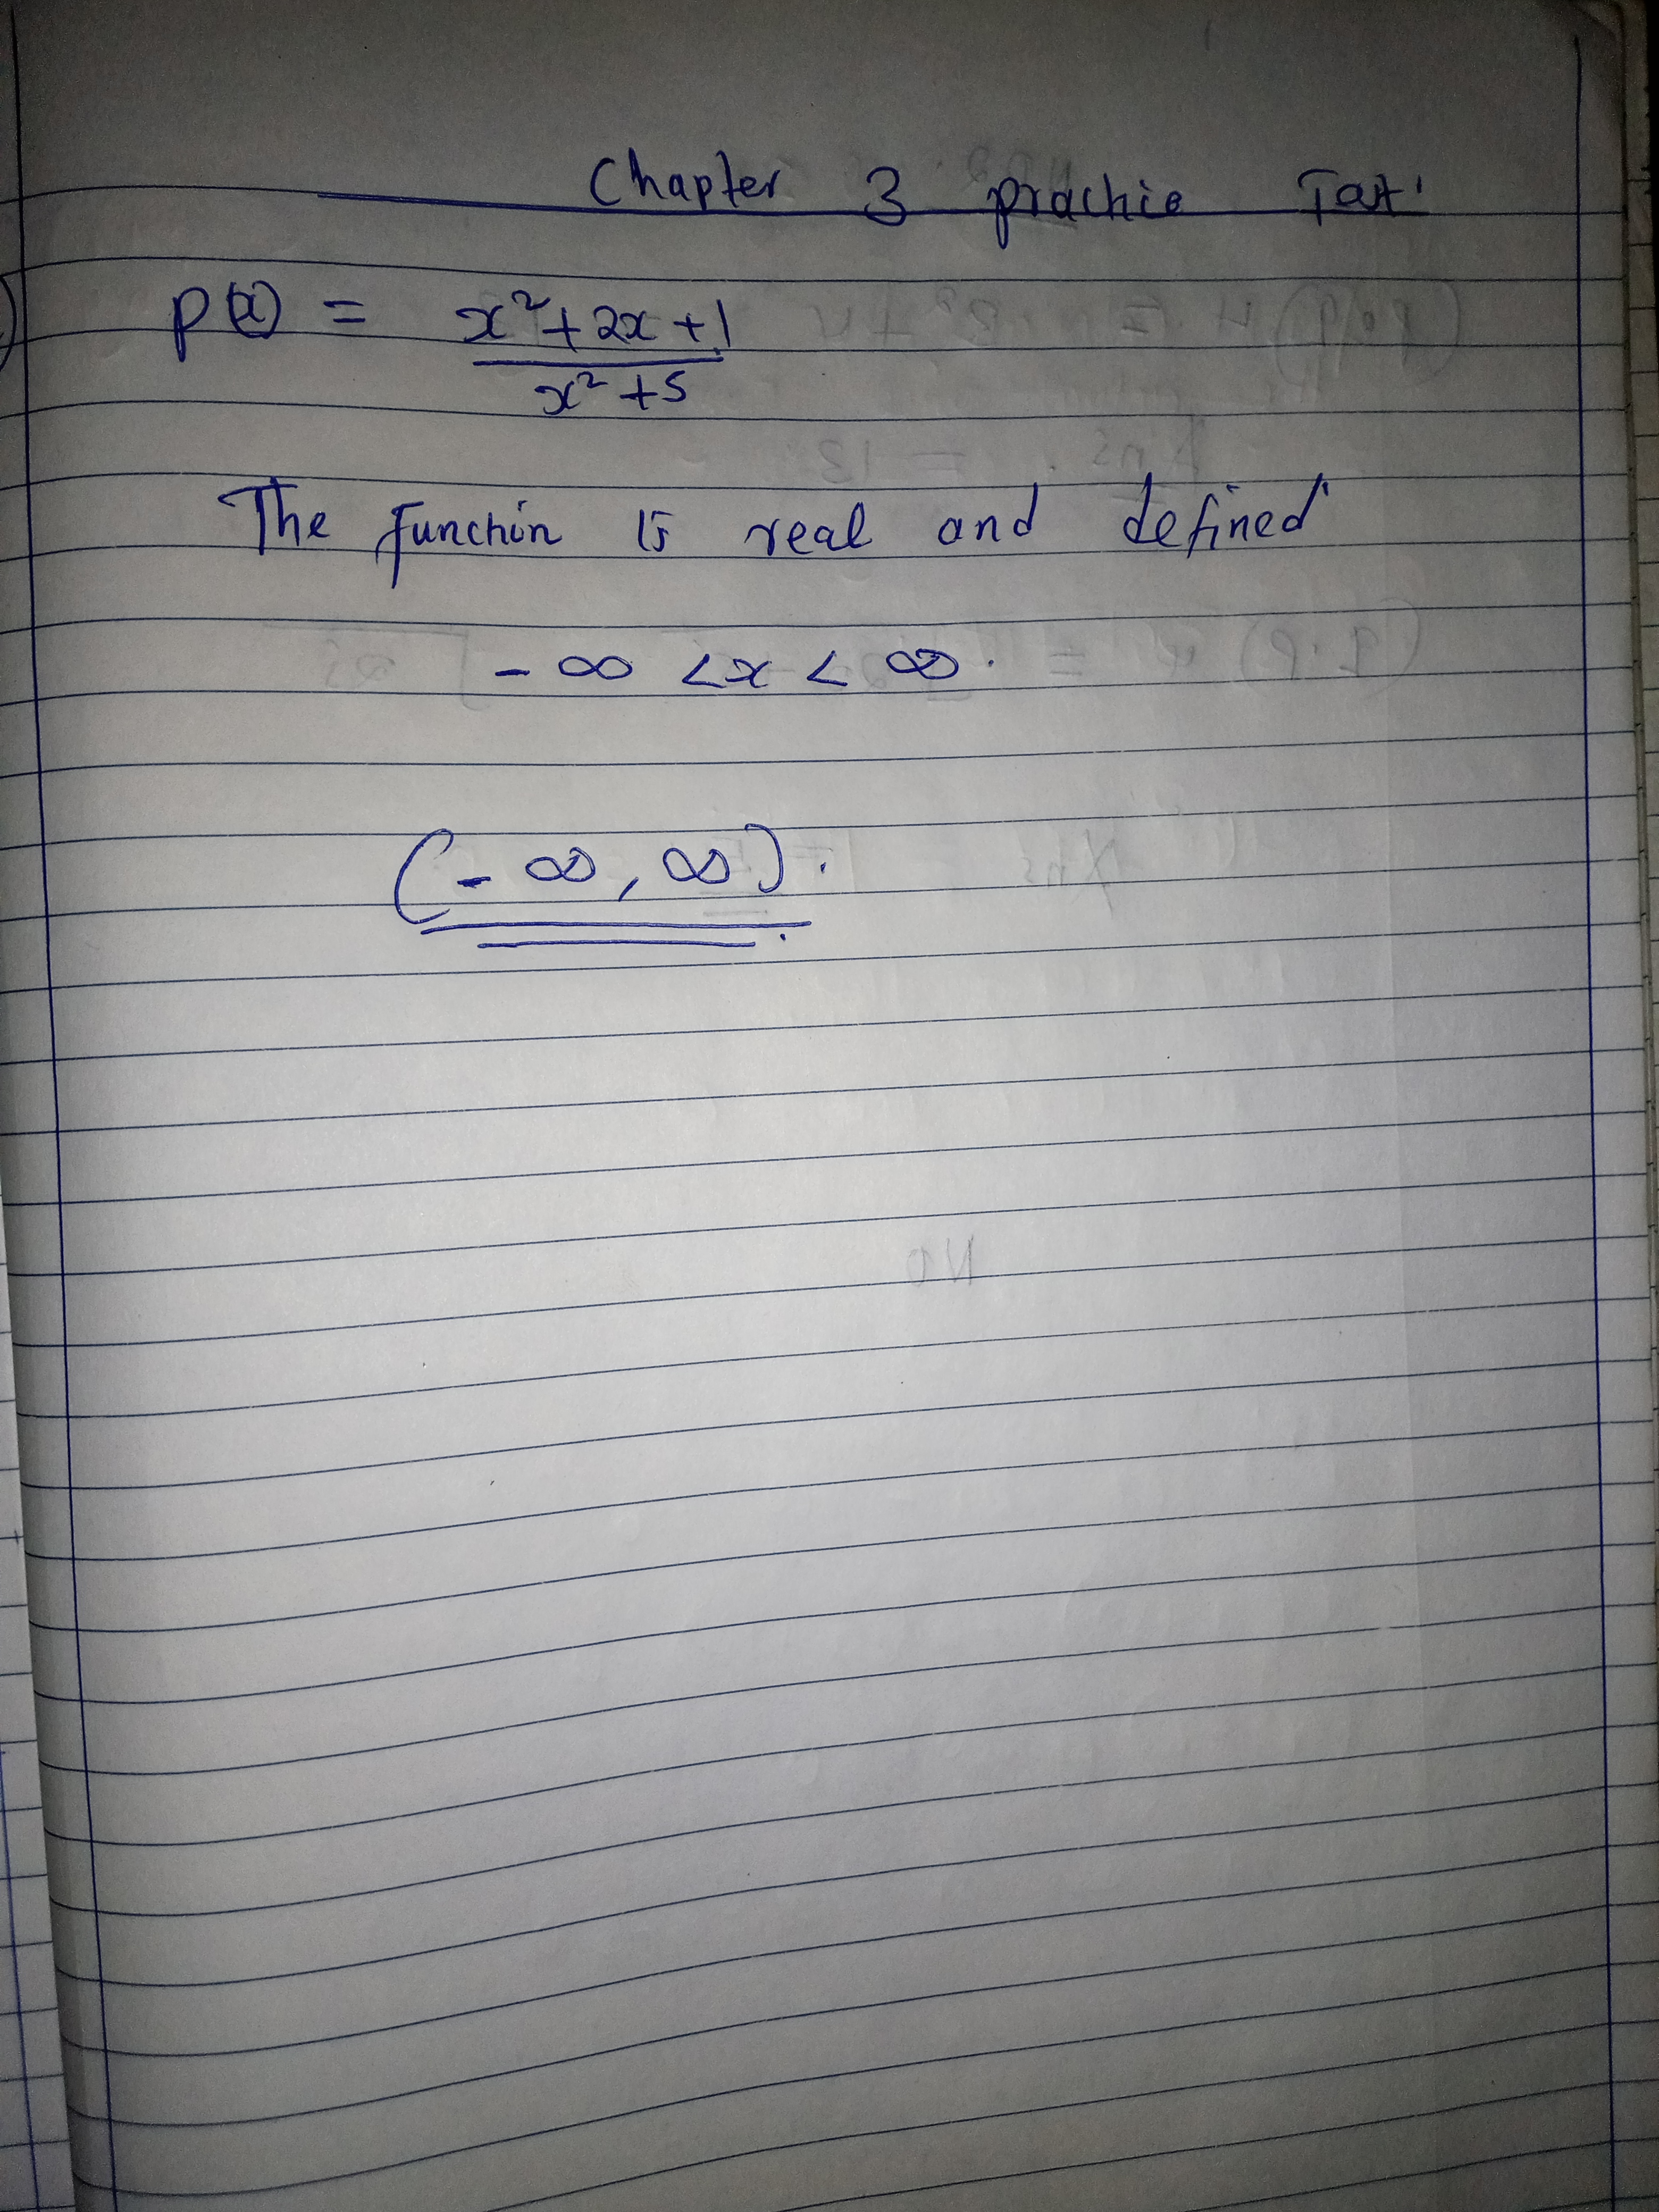 Chapter 3 practice Test
P(x) = x²+2x+1
x²+5
The function is real and defined
- ∞ < x < ∞.
(- ∞, ∞).